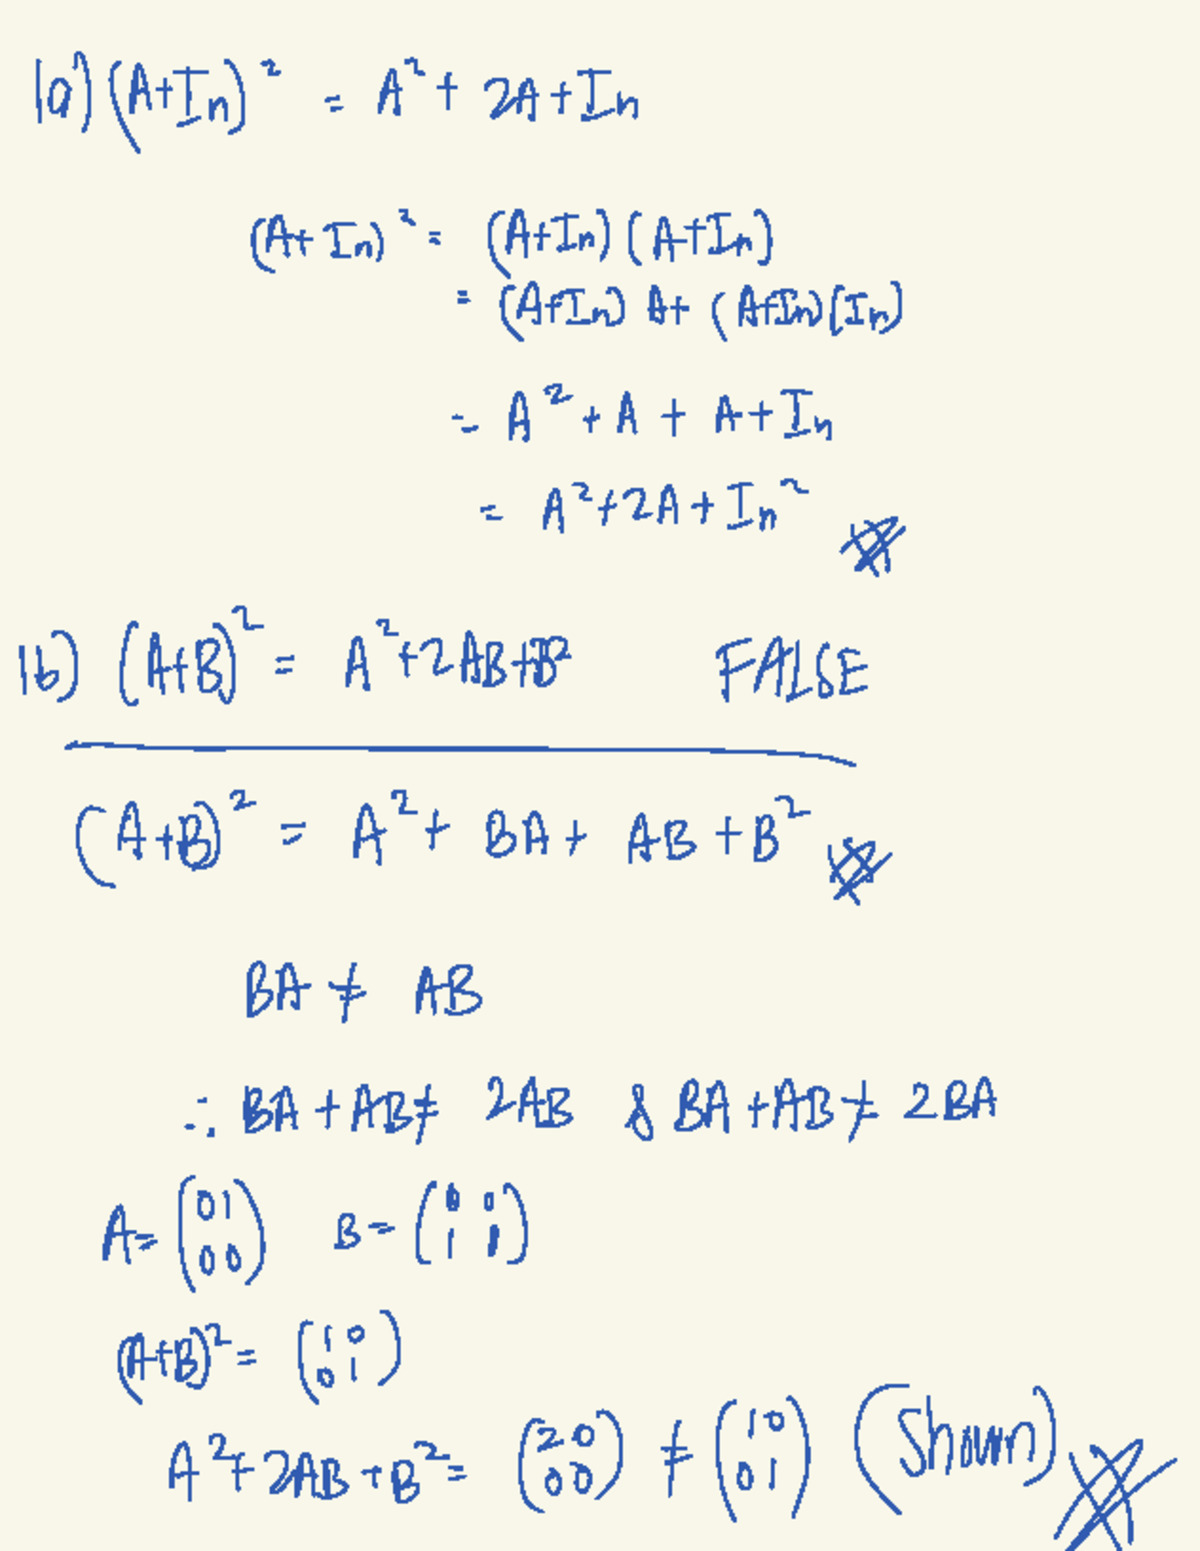 1a) (A+In)² = A² + 2A + In
(A+In)² = (A+In)(A+In)
= (A+In) A + (A+In)(In)
= A² + A + A + In
= A² + 2A + In²
1b) (A+B)² = A² + 2AB + B² FALSE
(A+B)² = A² + BA + AB + B²
BA ≠ AB
∴ BA + AB ≠ 2AB & BA + AB ≠ 2BA
A = (0 1
0 0) B = (0 0
1 0)
(A+B)² = (1 0
0 1)
A² + 2AB + B² = (2 0
0 0) ≠ (1 0
0 1) (Shown)